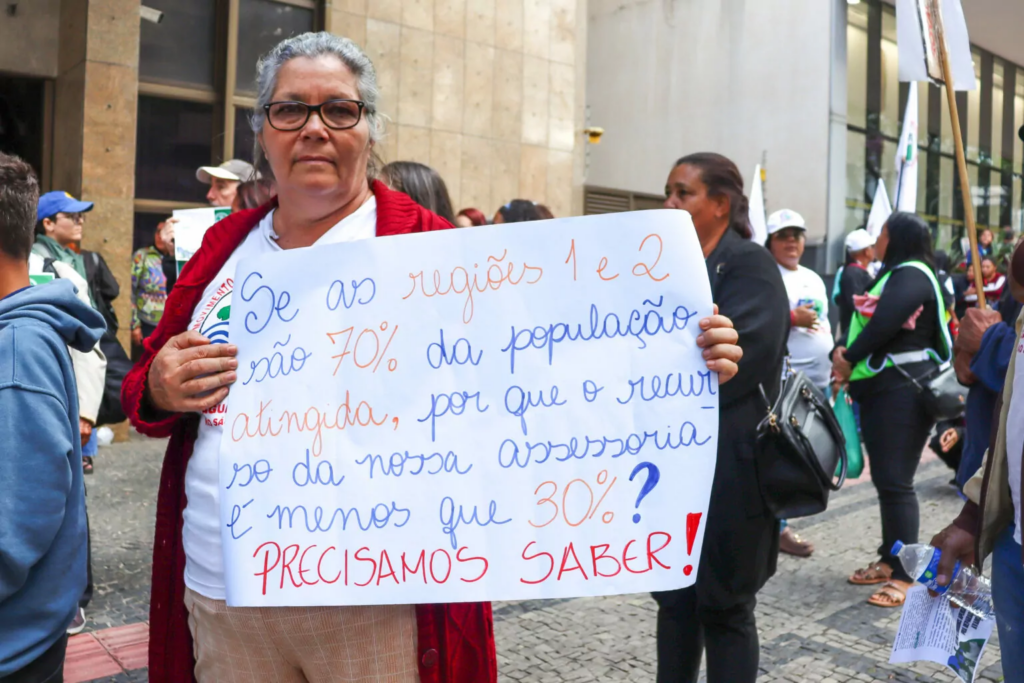 Se as regiões 1 e 2
são 70% da população
atingida, por que o recur-
so da nossa assessoria
é menos que 30%?
PRECISAMOS SABER!